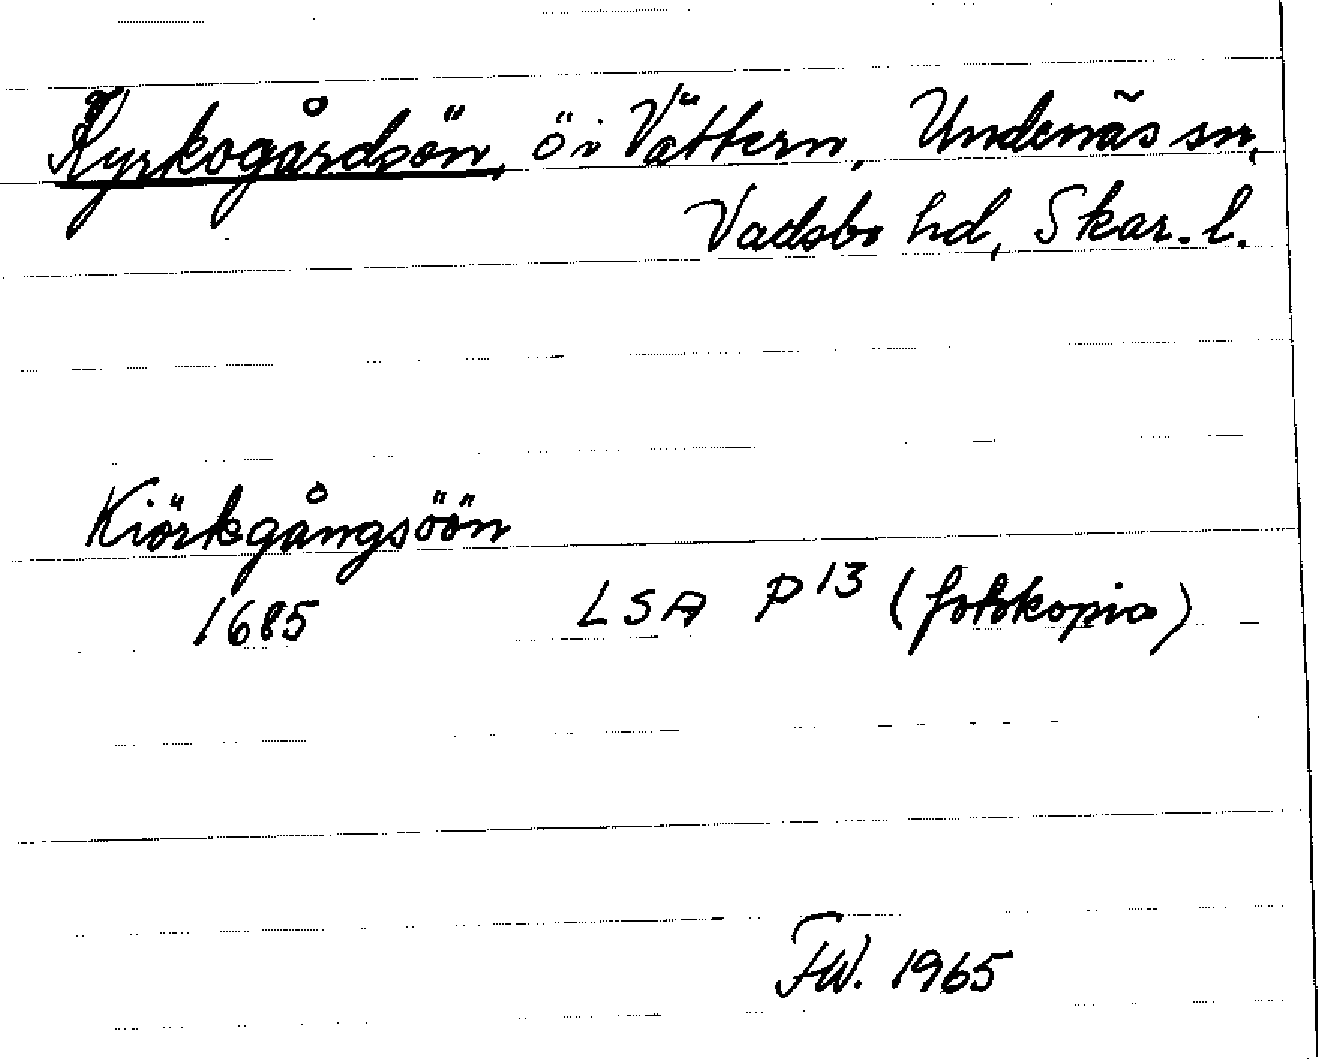 Kyrkogårdsön, ö i Vättern, Undenäs sn,
Vadsbo hd, Skar. l.
Kiörkgångsöön
1685 LSA P 13 (fotokopia)
FW. 1965